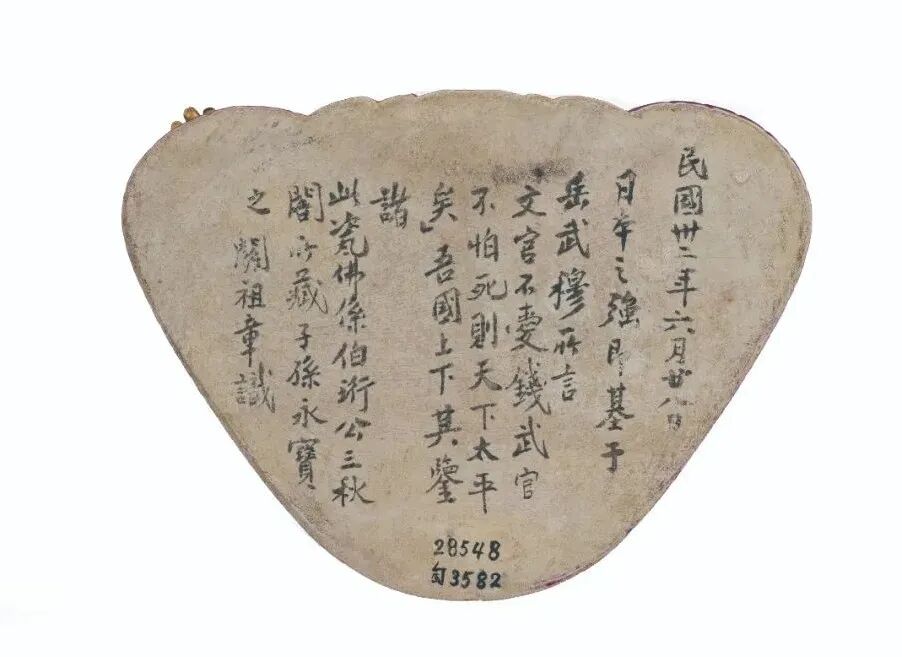 民國卅二年六月廿八日
日本之強即基于
岳武穆所言
文官不愛錢武官
不怕死則天下太平
矣」吾國上下其鑒
諸
此瓷佛係伯珩公三秋
閣所藏子孫永寶
之 關祖章識
28548
旬3582